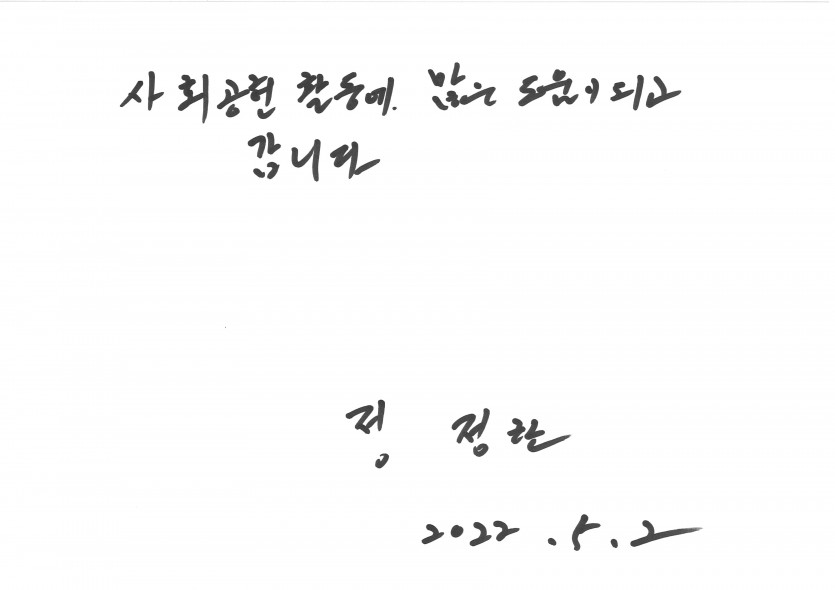 사회공헌 활동에. 많은 도움이 되고
갑니다
정 정란
2022.5.2